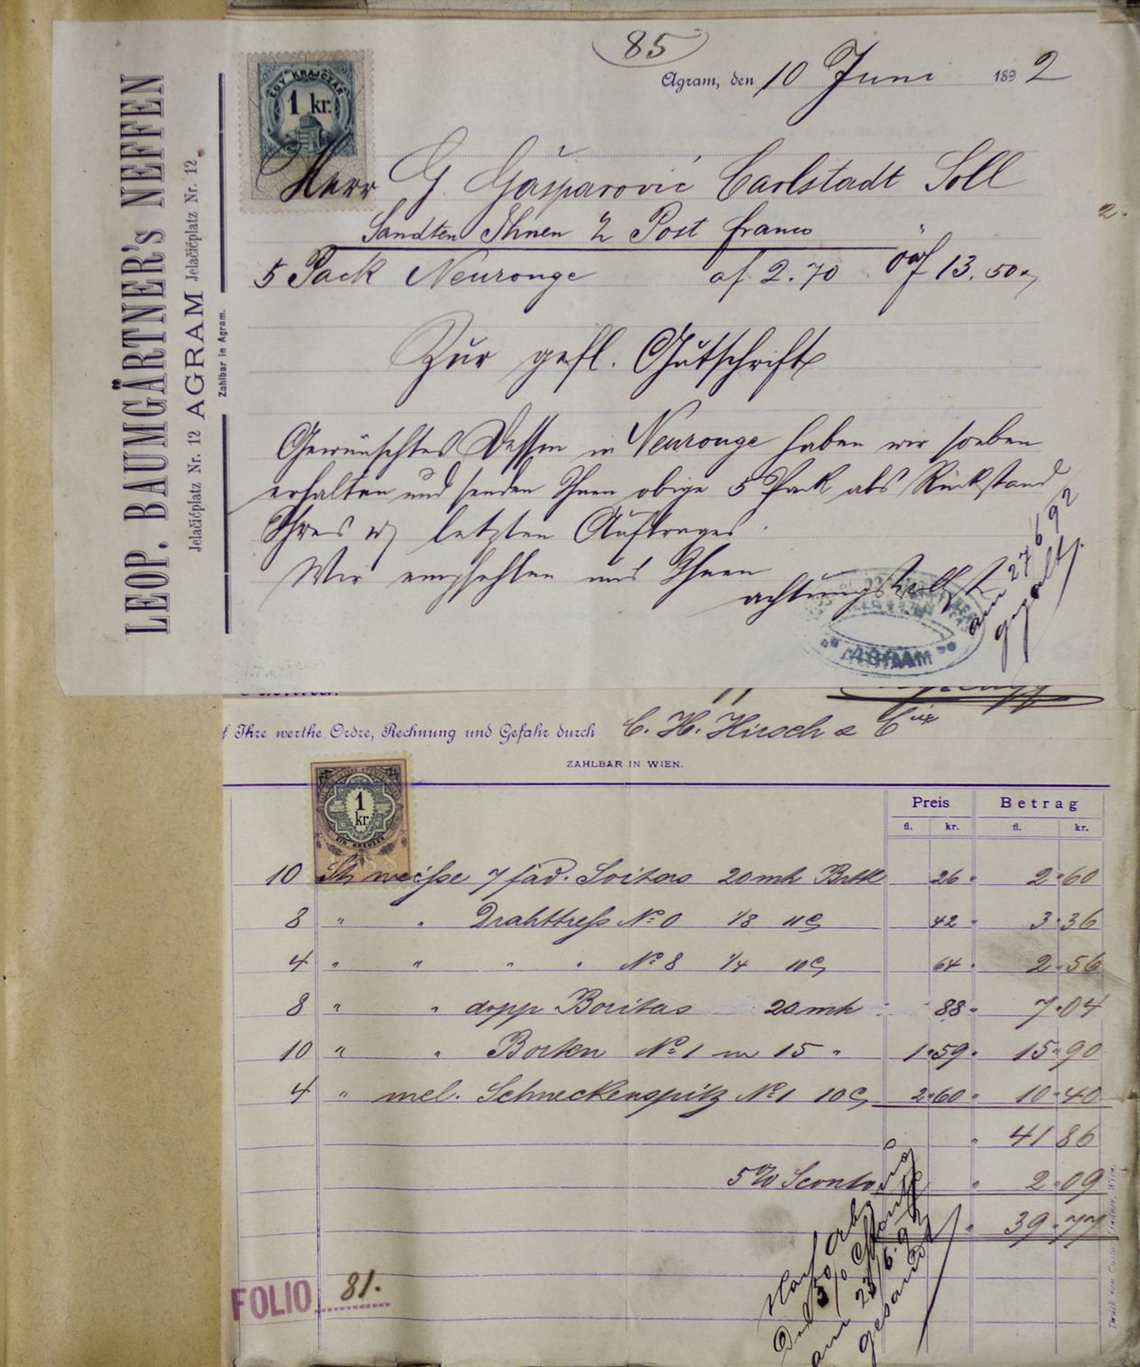 85
Agram, den 10 Juni 1892
LEOP. BAUMGÄRTNER's NEFFEN
Jelačićplatz Nr. 12 AGRAM Jelačićplatz Nr. 12.
Zahlbar in Agram.
EGY KRAJCZÁR
1 kr.
Herr G. Gašparović Carlstadt Soll
Sandten Ihnen Post franco
5 Pack Neurouge af 2.70 öwf 13.50
2.
Zur gefl. Gutschrift
Gewünschtes Dessin in Neurouge haben wir soeben
erhalten und senden Ihnen obige 5 Pack als Rückstand
Ihres letzten Auftrages.
Wir empfehlen uns Ihnen
achtungsvollst
AGRAM
am 27/6 92
gezahlt
Ihre werthe Ordre, Rechnung und Gefahr durch C. H. Hirsch & Cie
ZAHLBAR IN WIEN.
Preis Betrag
fl. kr. fl. kr.
1 kr.
EIN KREUZER
10 St weisse 7 fäd. Soitas 20 mtr 26 2.60
8 " " Drahttress No 0 1/8 42 3.36
4 " " " " No 8 1/4 64 2.56
8 " " dopp Soitas 20 mtr 88 7.04
10 " " Borten No 1 m 15 " 1.59 15.90
4 " mel. Schneckenspitz No 1 2.60 10.40
41 86
5% Sconto 2.09
39.77
5% Sconto
am 23/6. 92
gesandt
FOLIO 81.